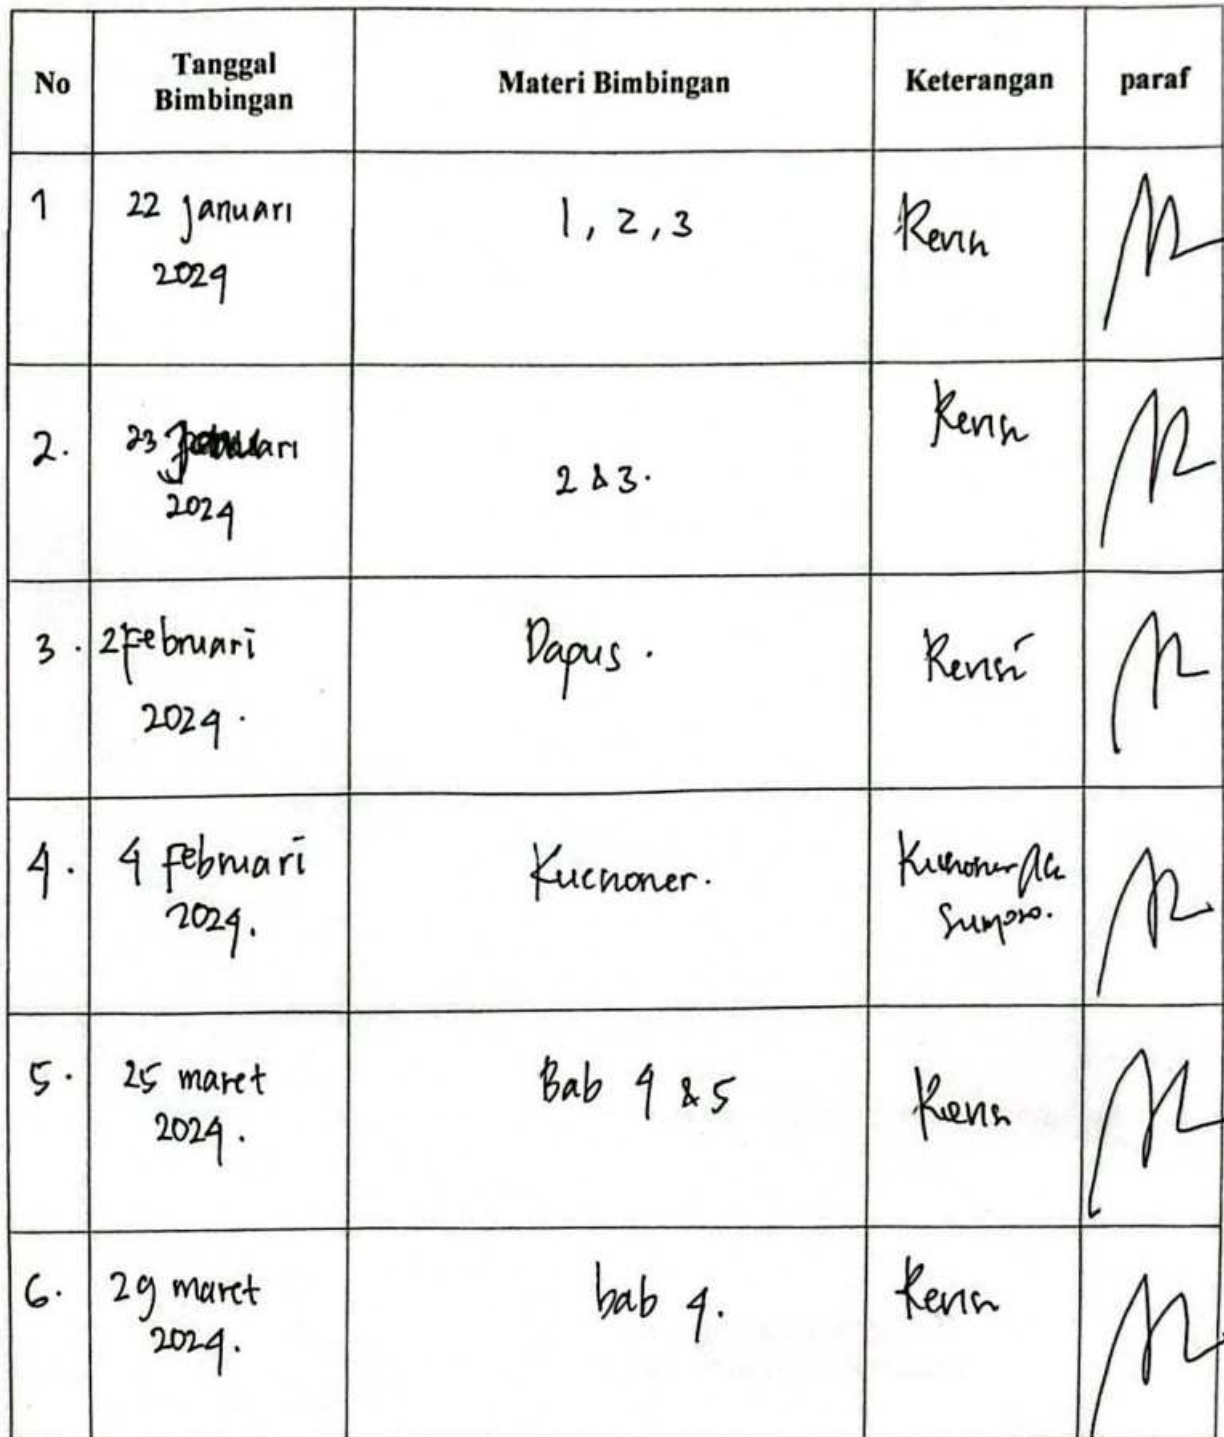 No
Tanggal
Bimbingan
Materi Bimbingan
Keterangan
paraf
1
22 januari
2024
1, 2, 3
Revisi
2.
23 januari
2024
2 & 3.
Revisi
3.
2 Februari
2024.
Dapus.
Revisi
4.
4 Februari
2024.
Kuesioner.
Kuesioner
5.
25 maret
2024.
Bab 4 & 5
Revisi
6.
29 maret
2024.
bab 4.
Revisi